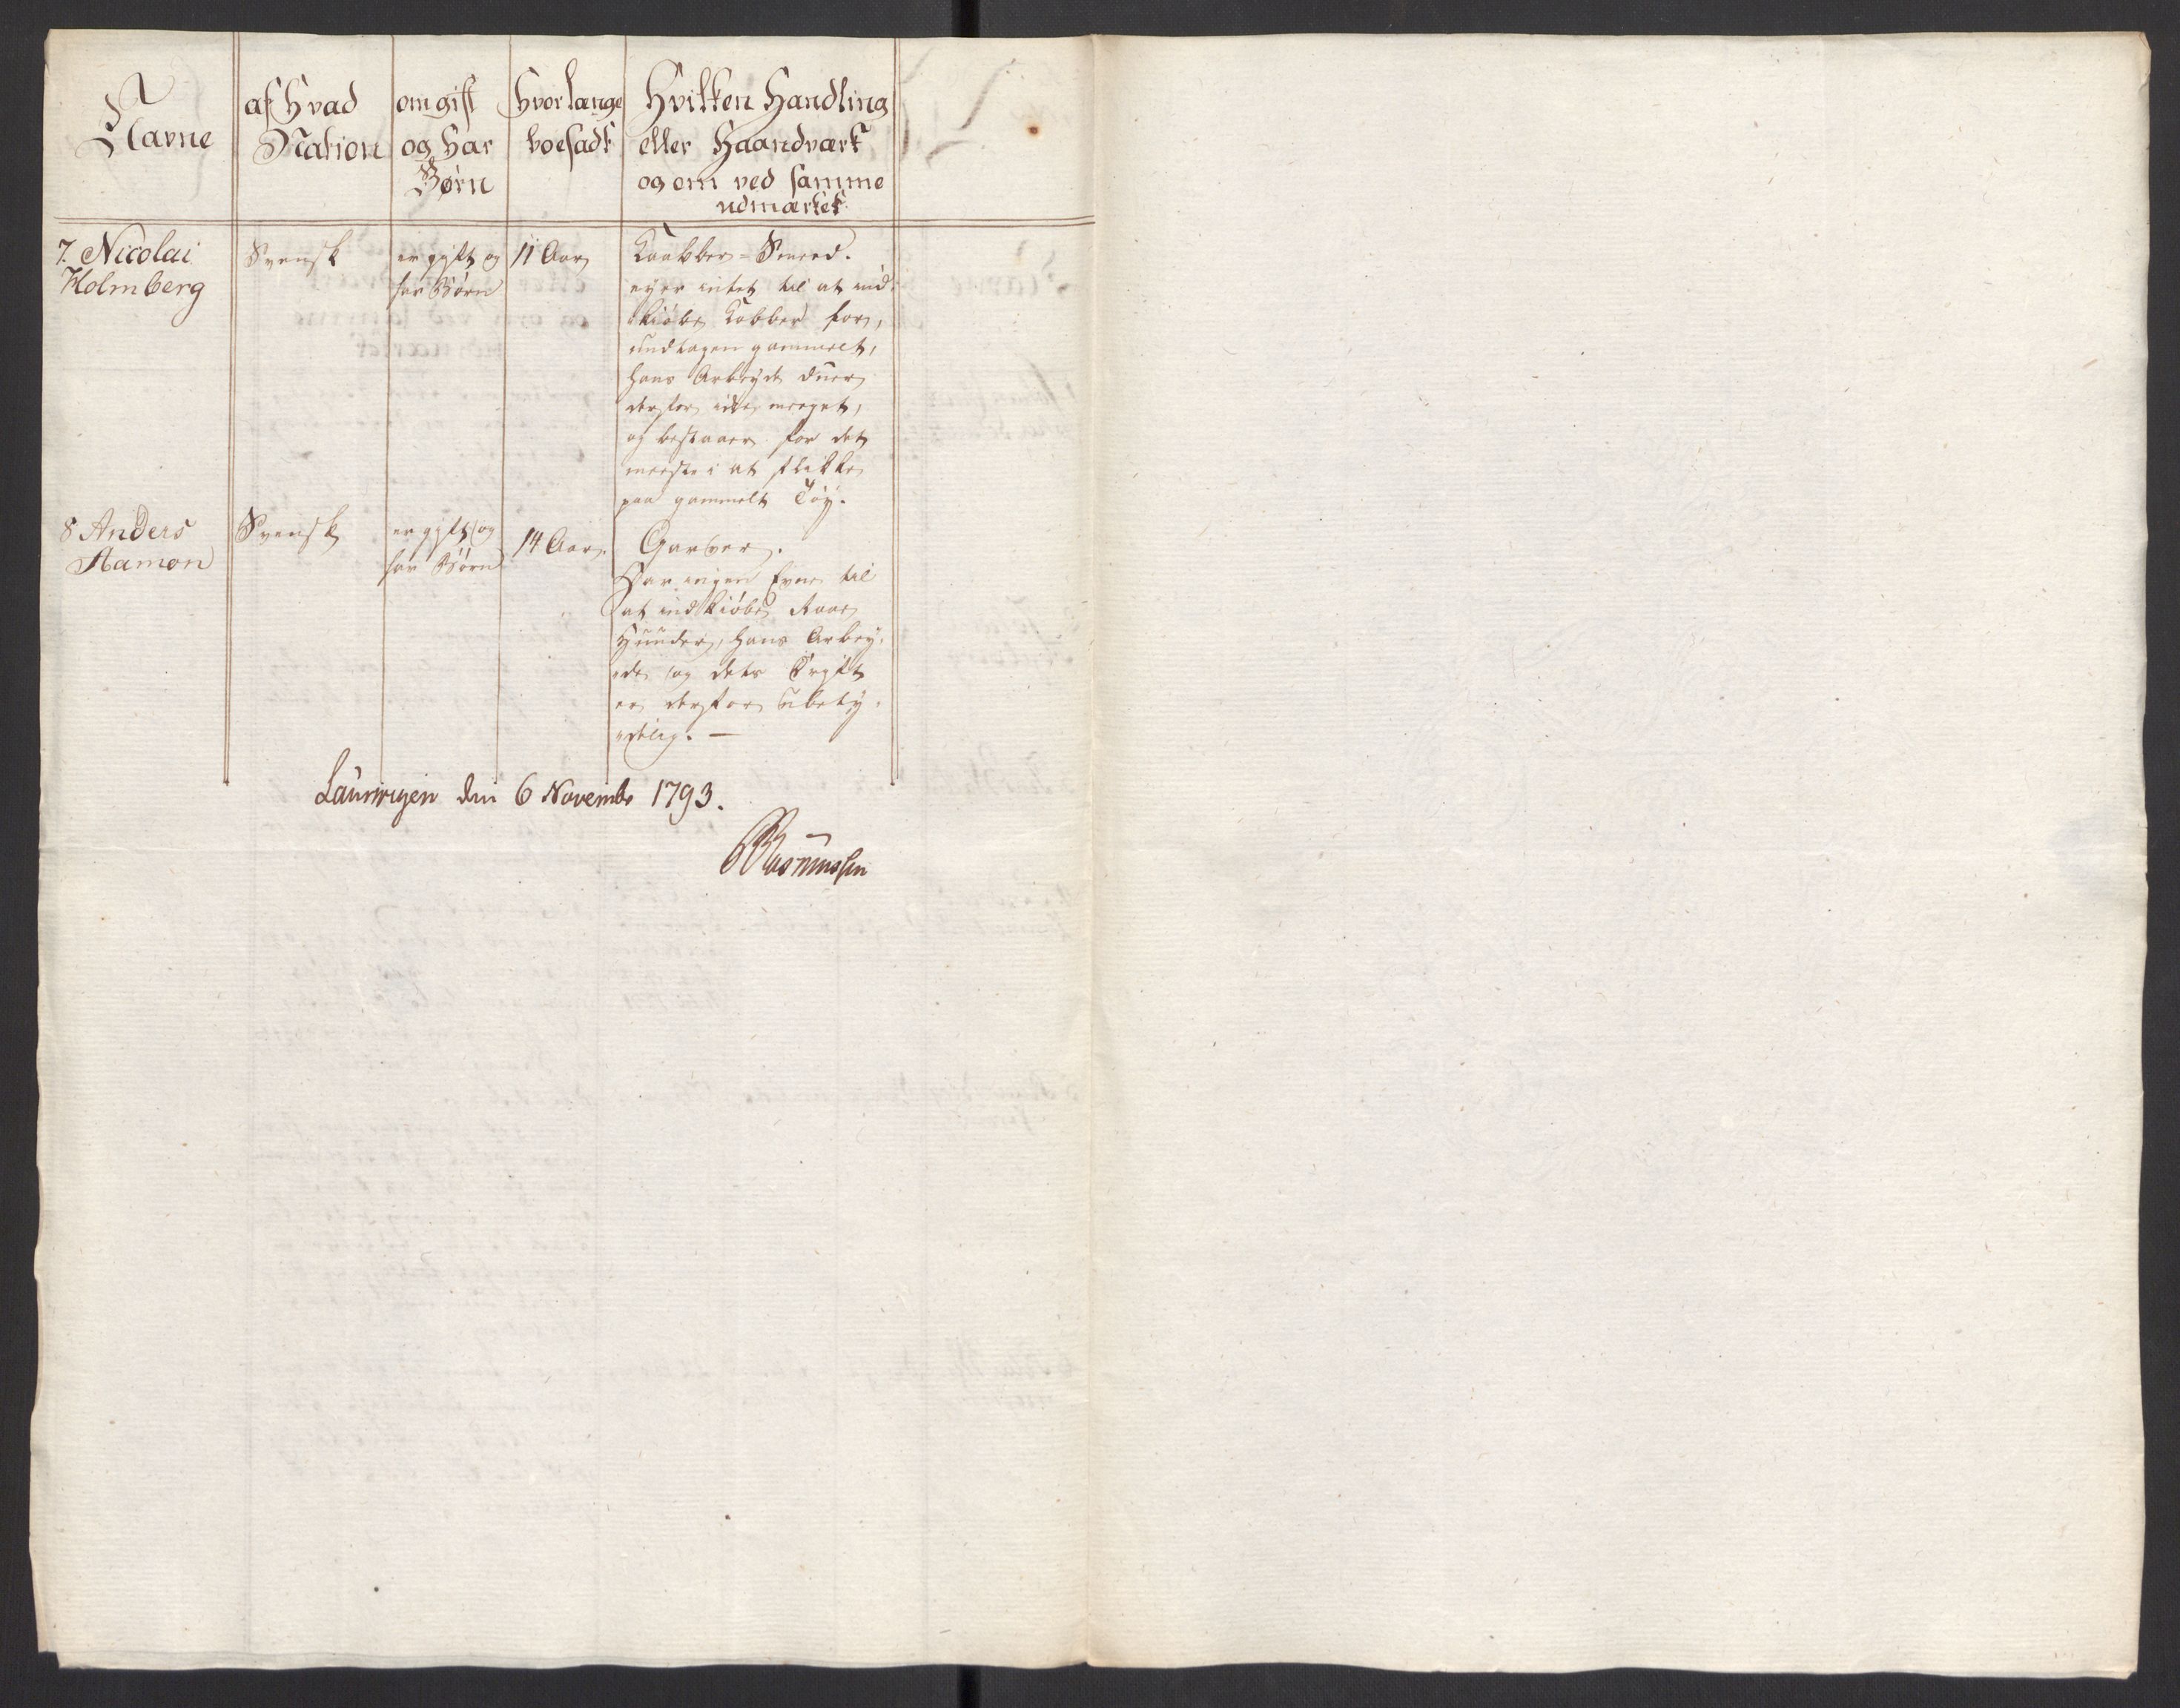 Navne
af Hvad
Nation
om gift
og Har
Børn
Hvor længe
boesadt
Hvilken Handling
eller Haandværk
og om ved samme
udmærket
7. Nicolai
Holmberg
Svensk
er gift og
har Børn
11 Aar
Kaabber-Smeed.
eyer intet til at ind-
kiøbe Kobber for,
undtagen gammelt,
hans Arbeyde duer
derfor ikke meeget,
og bestaaer for det
meeste i at flikke
paa gammelt Tøy.
8 Anders
Hamon
Svensk
er gift og
har Børn
14 Aar.
Garver.
Har ingen Evne til
at indkiøbe Raae
Huuder, hans Arbey-
de og dets Drift
er derfor ubety-
delig. —
Laurvigen den 6 Novembr 1793.
Rasmussen